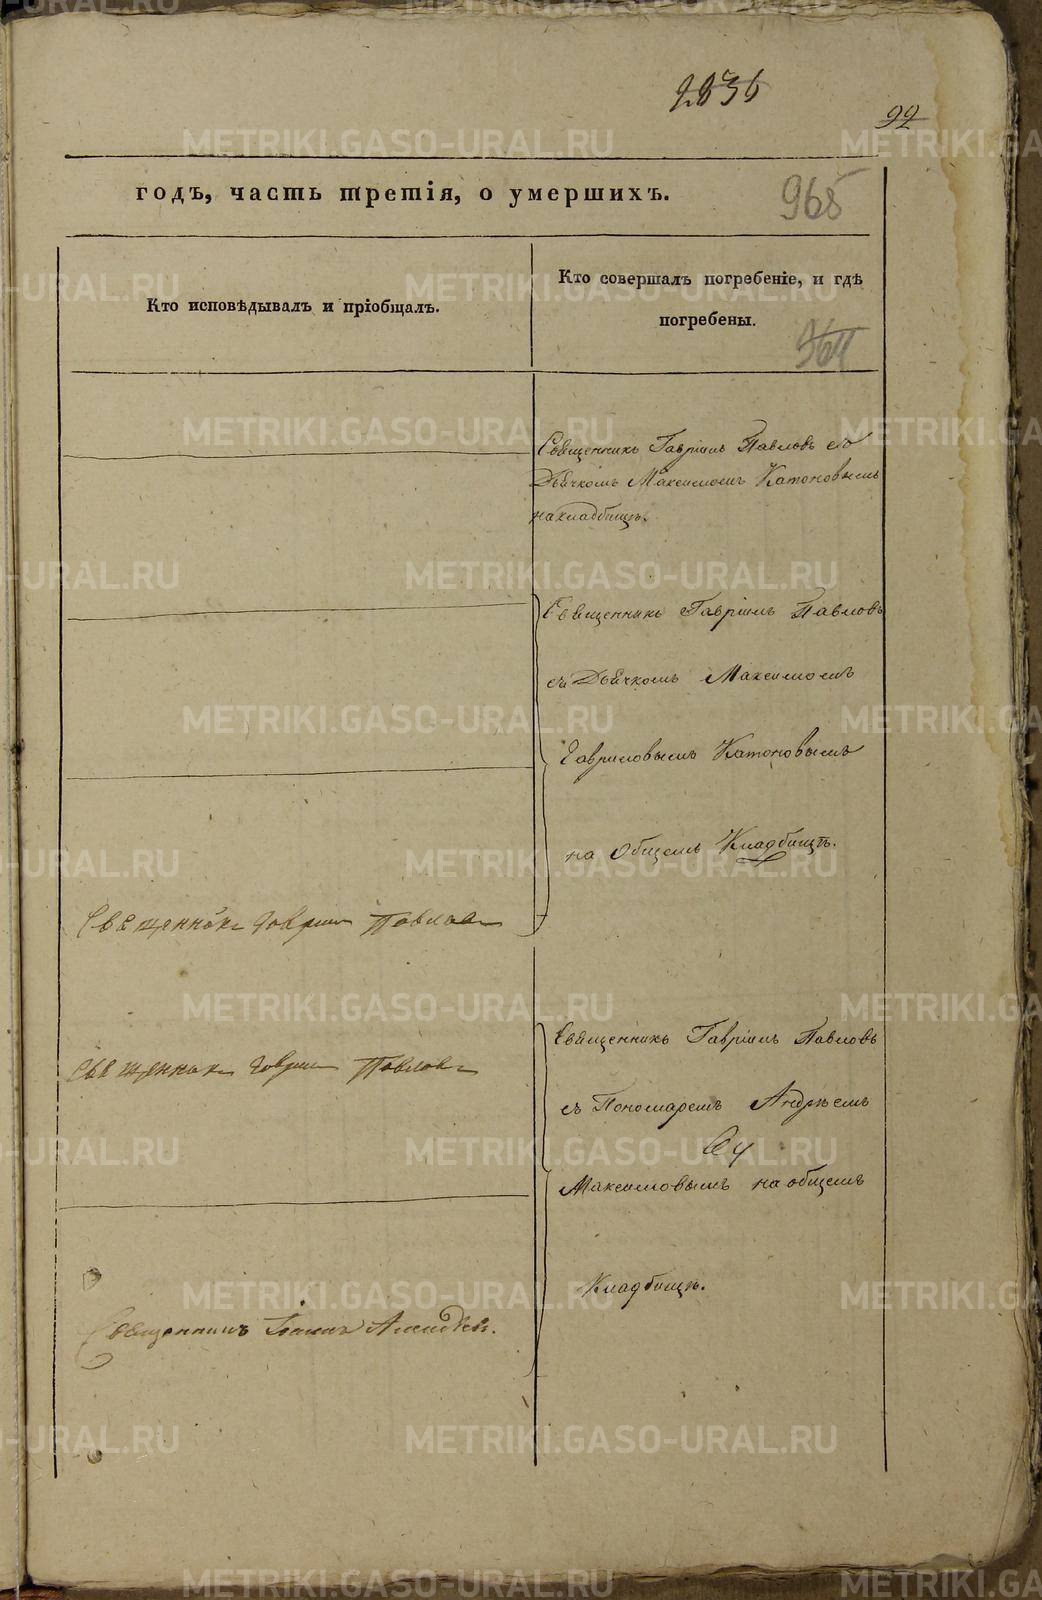 92
годъ, часть третія, о умершихъ.
965
Кто исповѣдывалъ и пріобщалъ.
Кто совершалъ погребеніе, и гдѣ
погребены.
964
Священникъ Гавріилъ Павловъ
Дьячкомъ Максимомъ Катоновымъ
на кладбищѣ.
Священникъ Гавріилъ Павловъ
съ Дьячкомъ Максимомъ
Гавриловымъ Катоновымъ
на Общемъ Кладбищѣ.
Священникъ Гаврiилъ Павловъ
Священникъ Гавріилъ Павловъ
съ Пономаремъ Андреемъ
Максимовымъ на общемъ
Кладбищѣ.
Священникъ Гаврiилъ Павловъ
Священникъ Іоаннъ
METRIKI.GASO-URAL.RU